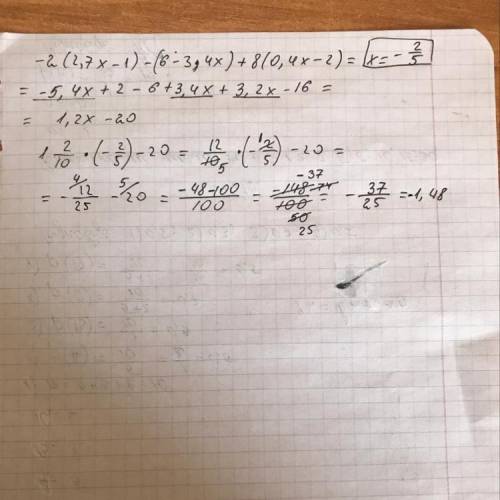 -2(2,7x-1)-(6-3,4x)+8(0,4x-2)= x=-2/5
=-5,4x+2-6+3,4x+3,2x-16=
=1,2x-20
1 2/10·(-2/5)-20=12/10 5·(-2/5 1)-20=
=-12/25 4-20 5=-48-100/100=-148 -74 -37/100 50 25=-37/25=-1,48